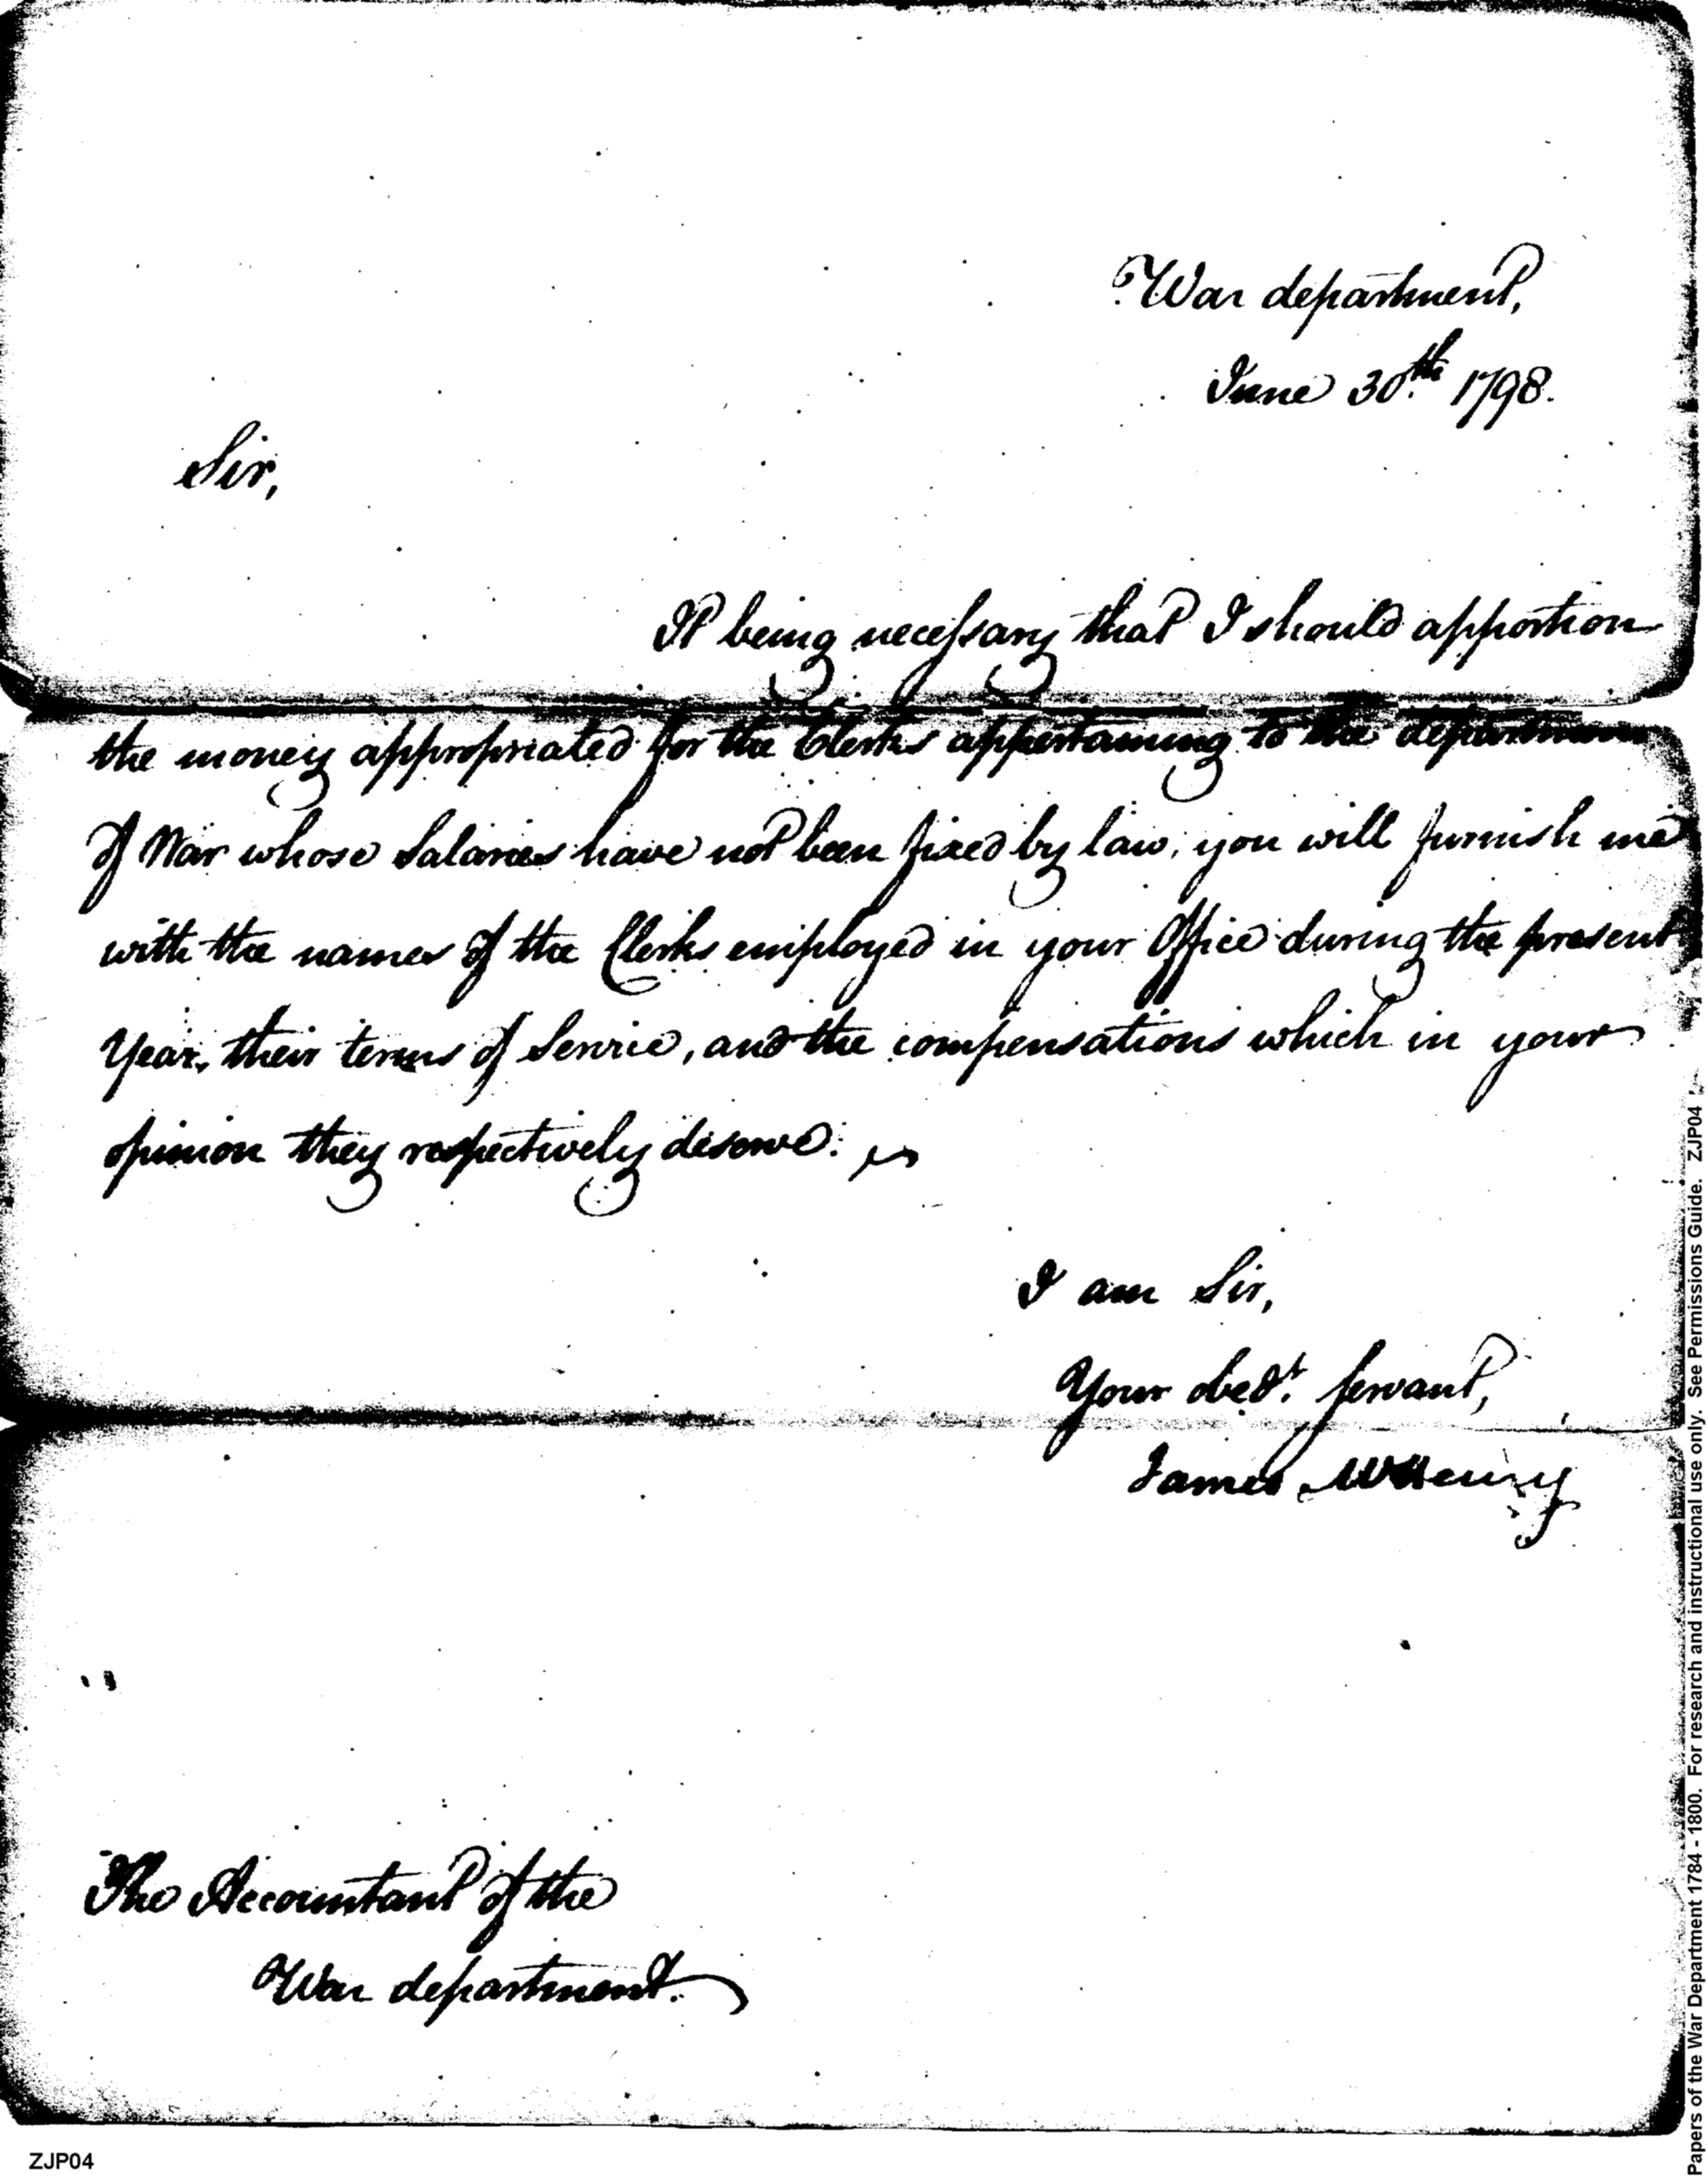 War department,
June 30th 1798.
Sir,
It being necessary that I should apportion
the money appropriated for the Clerks appertaining to the department
of War whose Salaries have not been fixed by law; you will furnish me
with the names of the Clerks employed in your Office during the present
Year, their terms of Service, and the compensations which in your
opinion they respectively deserve.
I am Sir,
Your obedt. servant,
James McHenry
The Accountant of the
War department.
ZJP04
Papers of the War Department 1784 - 1800. For research and instructional use only. See Permissions Guide. ZJP04